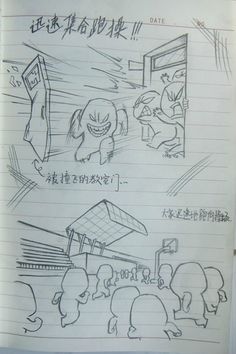 迅速集合跑操!!!
DATE
被撞飞的教室门...
大家迅速地跑向操场